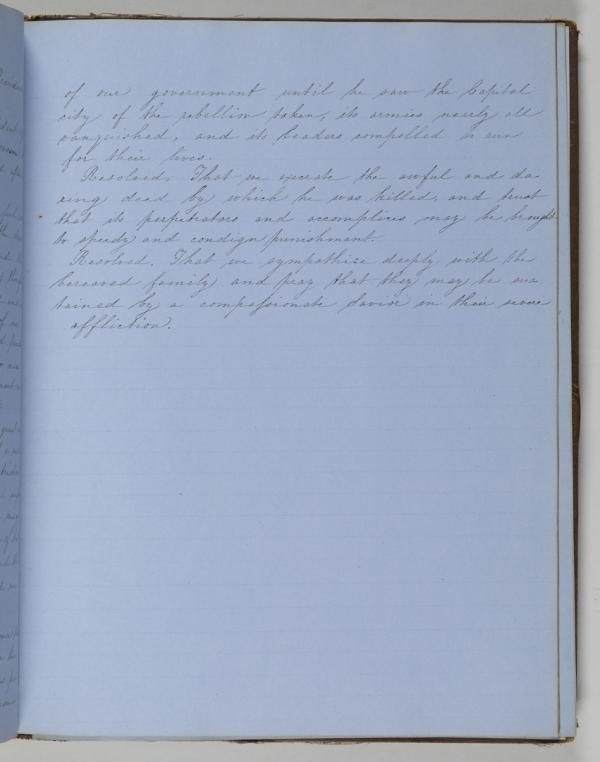 of our government until he saw the Capital
city of the rebellion taken, its armies nearly all
vanquished, and its leaders compelled to run
for their lives.
Resolved, That we execrate the awful and da-
ring deed by which he was killed, and trust
that its perpetrators and accomplices may be brought
to speedy and condign punishment.
Resolved. That we sympathize deeply with the
bereaved family and pray that they may be sus
tained by a compassionate Savior in their severe
affliction.